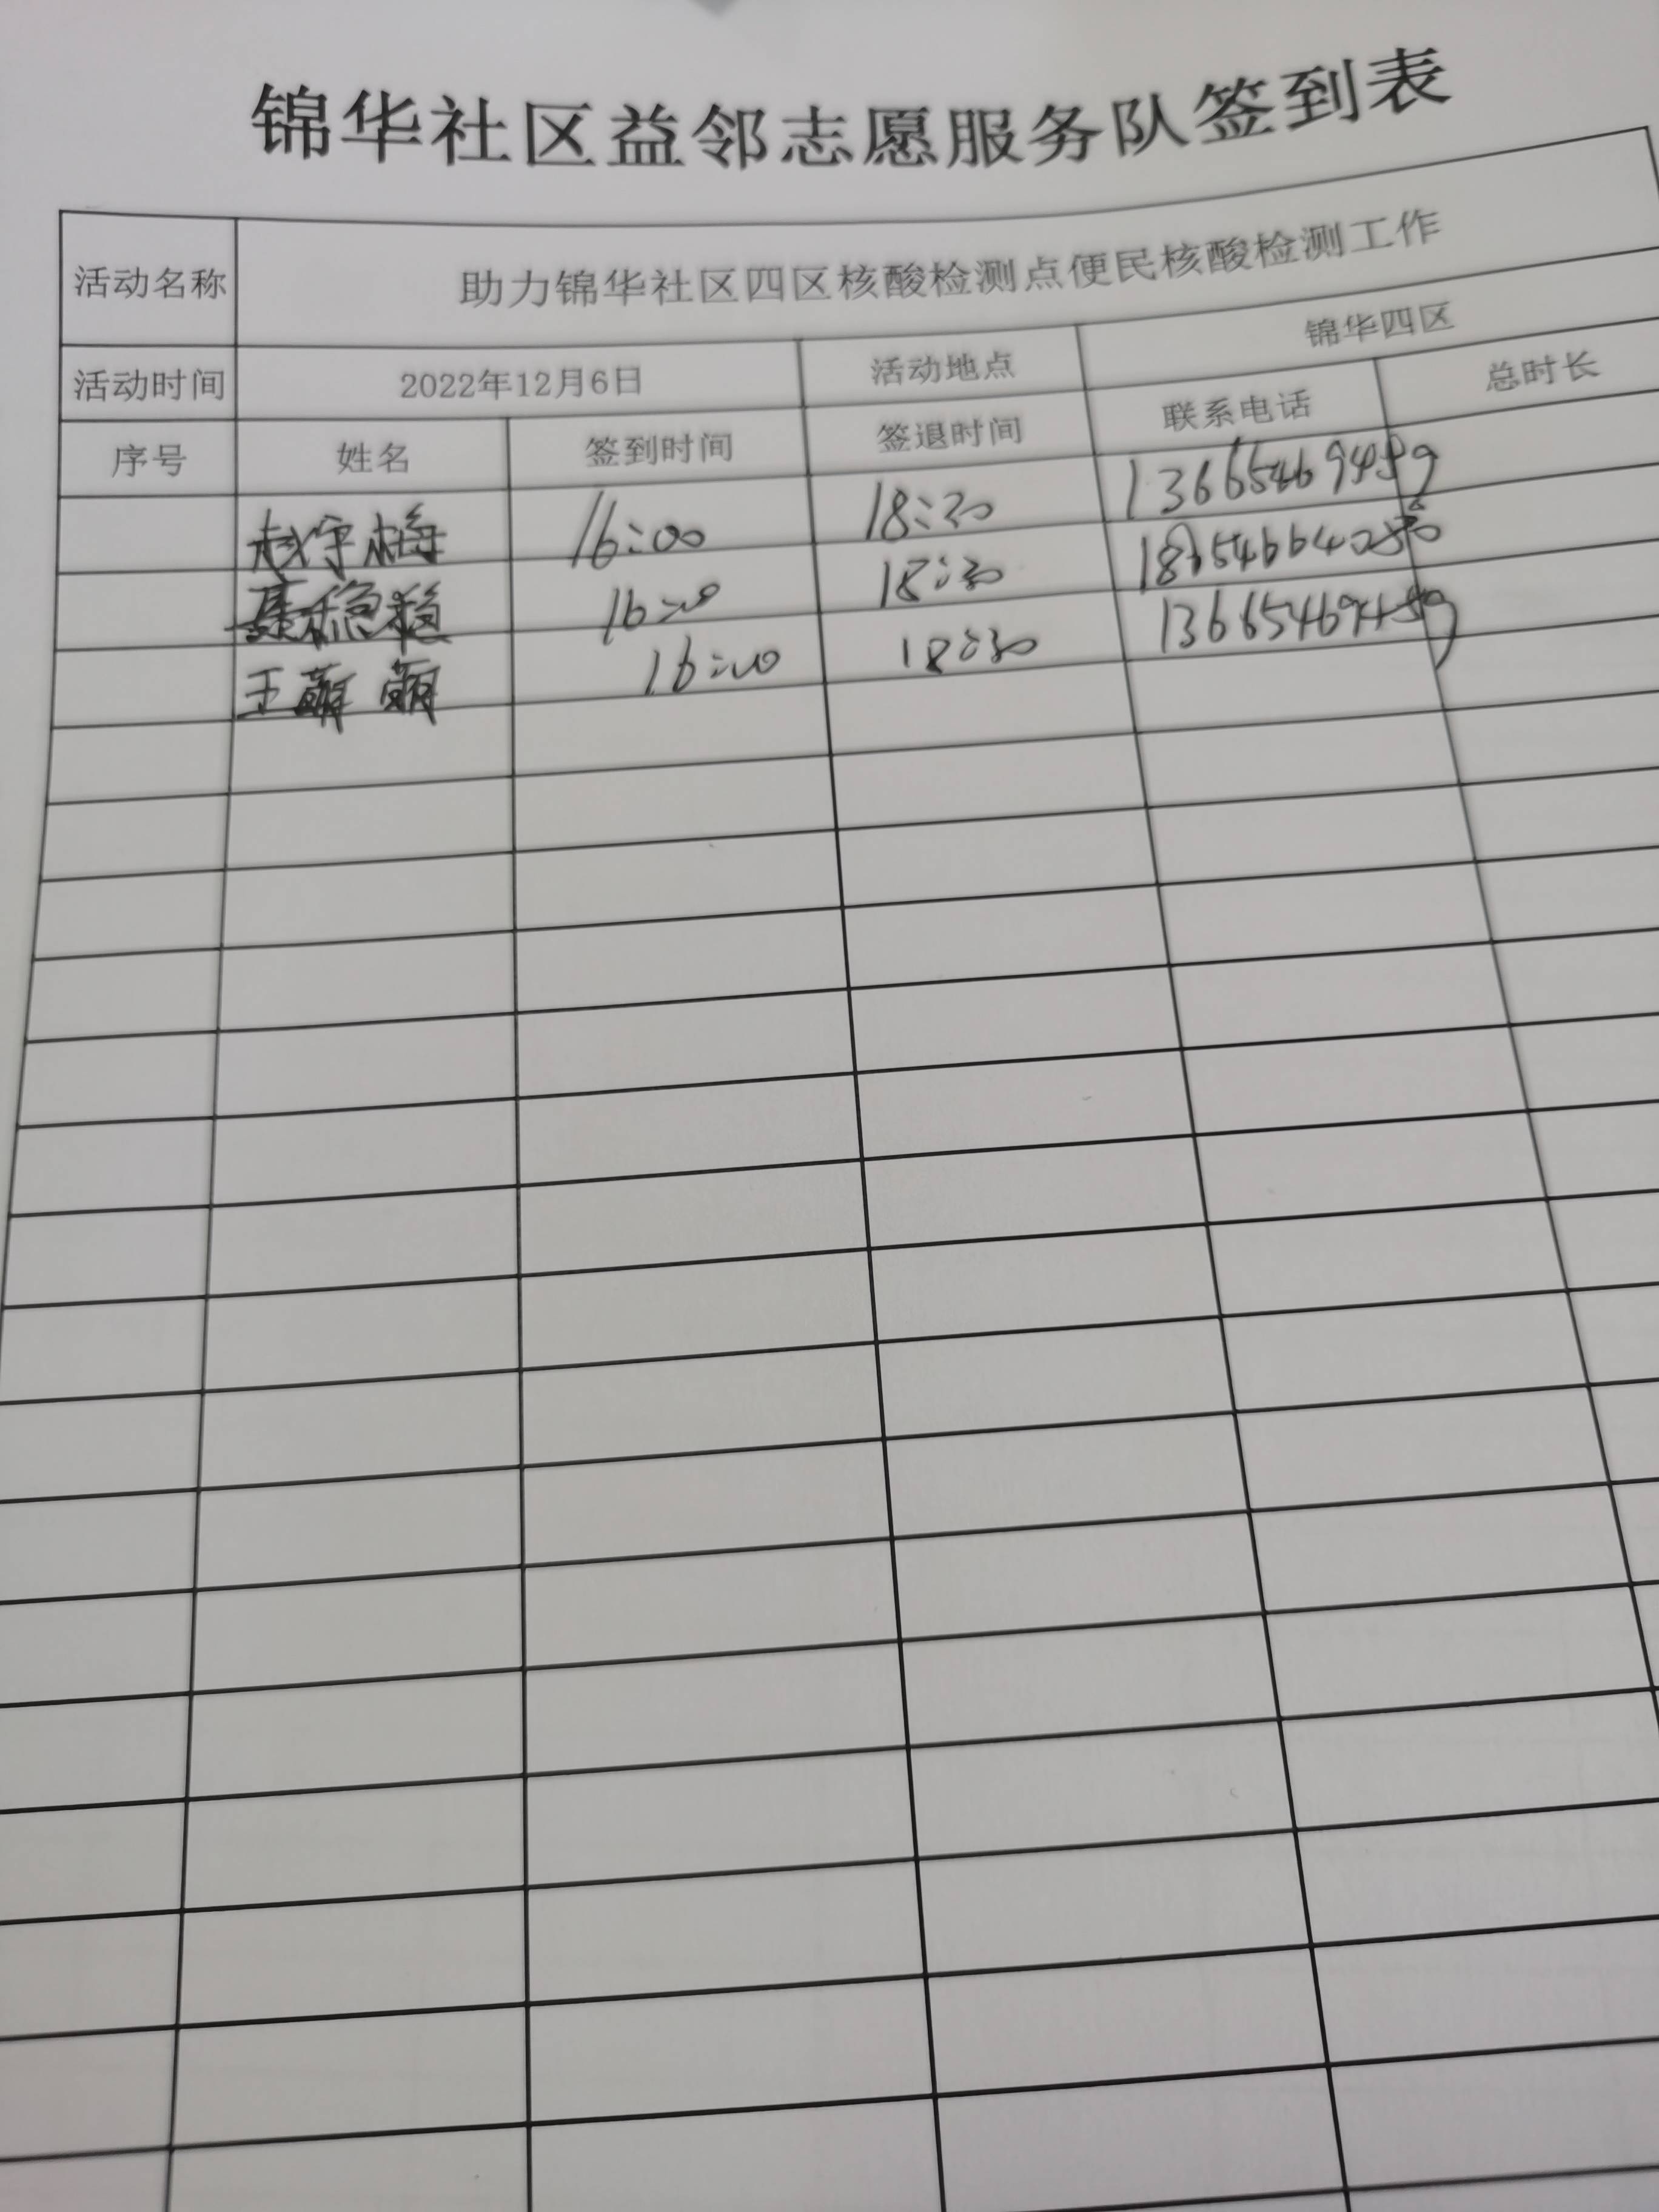 锦华社区益邻志愿服务队签到表
活动名称 助力锦华社区四区核酸检测点便民核酸检测工作
活动时间 2022年12月6日 活动地点 锦华四区
序号 姓名 签到时间 签退时间 联系电话 总时长
赵守梅 16:00 18:30 13665469489
聂稳稳 16:00 18:30
王萌萌 16:00 18:30